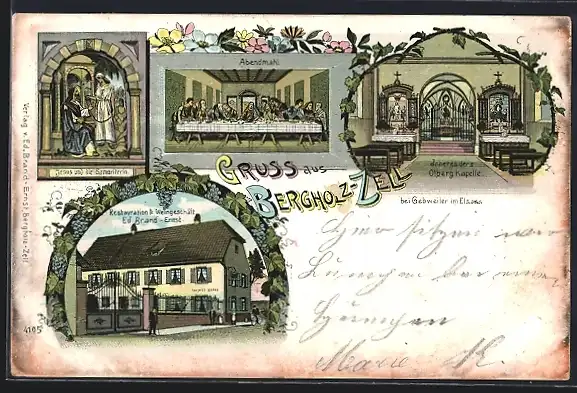 Abendmahl
Jesus und die Samariterin.
Inneres der
Ölberg Kapelle.
Gruss aus
Bergholz-Zell
bei Gebweiler im Elsass.
Restauration & Weingeschäft
Ed. Brand-Ernst
Verlag v. Ed. Brand-Ernst, Bergholz-Zell
4105
Hier sitzen wir
bei einem
Marie K.